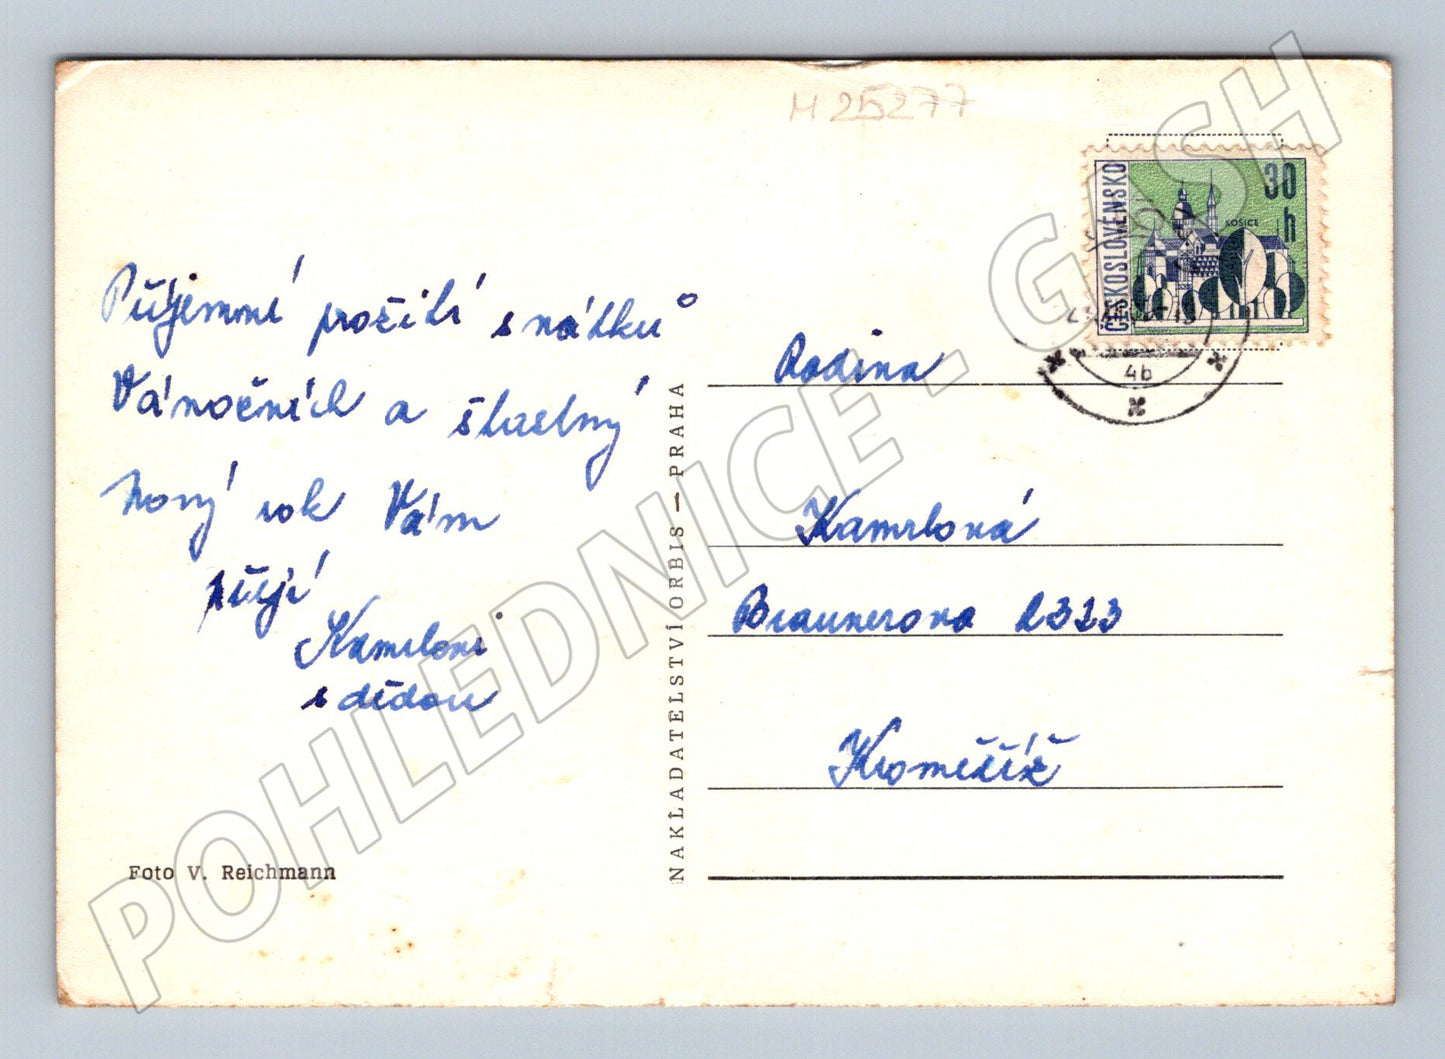 M 25277
ČESKOSLOVENSKO
30 h
KOŠICE
4b
Příjemné prožití svátků
Vánočních a šťastný
Nový rok Vám
přejí
Kamrlovi
s dědou
Foto V. Reichmann
NAKLADATELSTVÍ ORBIS — PRAHA
Rodina
Kamrlová
Braunerova 2323
Kroměříž
POHLEDNICE - GISH